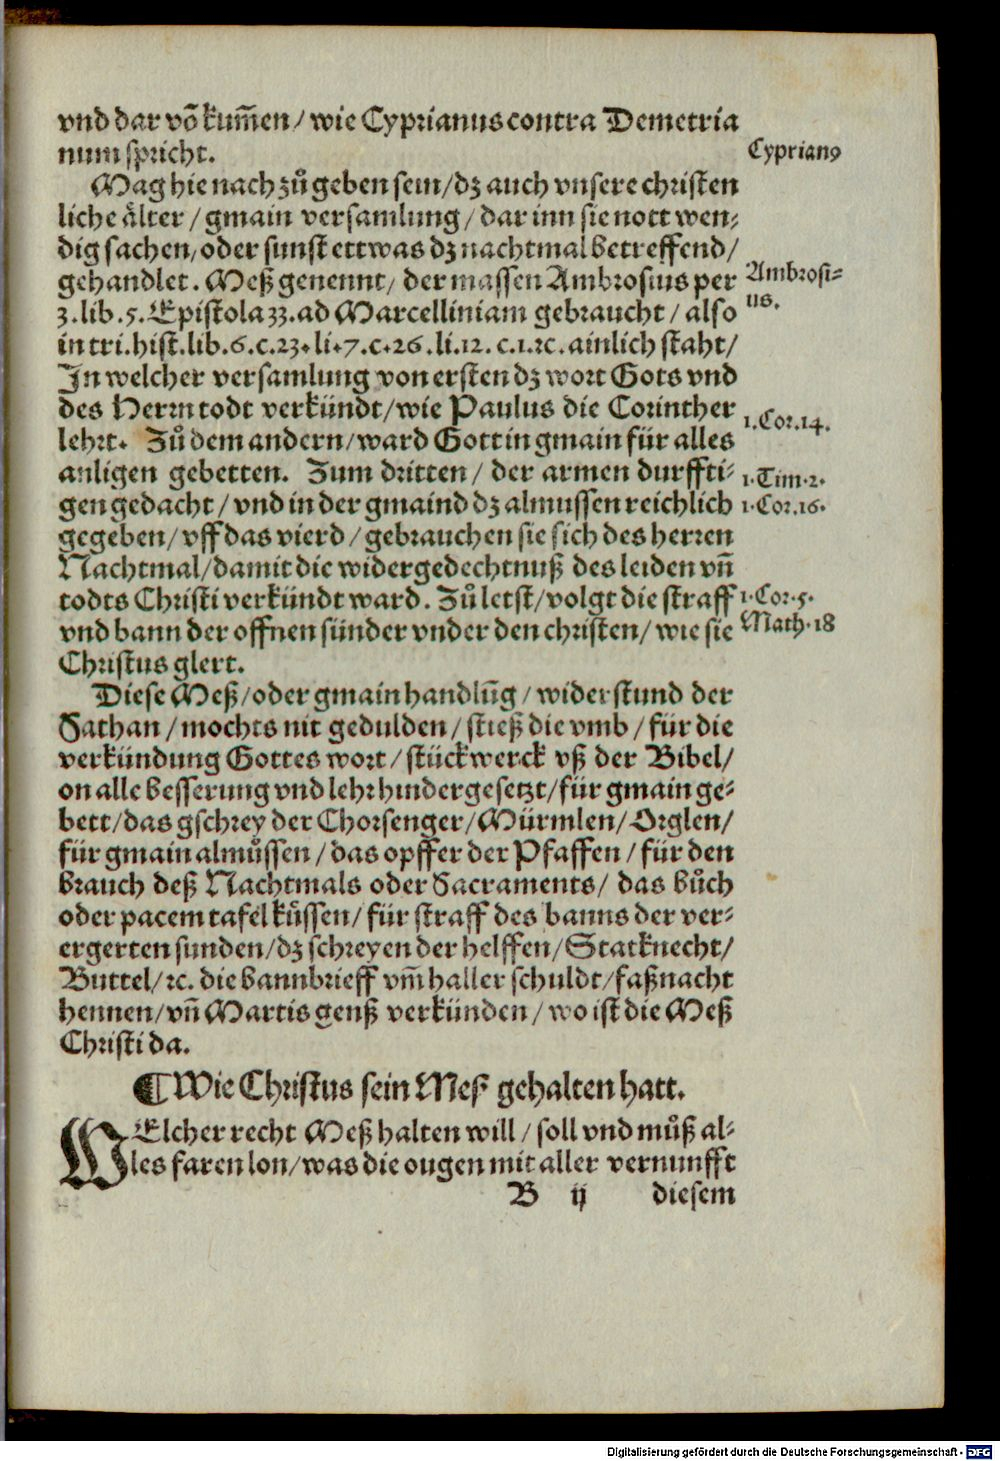 vnd dar võ kum̃en/ wie Cyprianus contra Demetria
num spricht.
Cyprianꝰ
Mag hie nach zů geben sein/ dz auch vnsere christen
liche ålter/ gmain versamlung/ dar inn sie nott wen⸗
dig sachen/ oder sunst ettwas dz nachtmal betreffend/
gehandlet. Meß genennt/ der massen Ambrosius per
Ambrosi⸗
us.
3. lib. 5. Epistola 33. ad Marcelliniam gebraucht/ also
in tri. hist. lib. 6. c. 23. li. 7. c. 26. li. 12. c. 1. ꝛc. ainlich staht/
In welcher versamlung von ersten dz wort Gots vnd
des Herrn todt verkündt/ wie Paulus die Corinther
1. Cor. 14.
lehrt. Zů dem andern/ ward Gott in gmain für alles
anligen gebetten. Zum dritten/ der armen durffti⸗
1. Tim. 2.
gen gedacht/ vnd in der gmaind dz almussen reichlich
1. Cor. 16.
gegeben/ vff das vierd/ gebrauchen sie sich des herren
Nachtmal/ damit die widergedechtnuß des leiden vñ
todts Christi verkündt ward. Zů letst/ volgt die straff
1. Cor. 5.
vnd bann der offnen sünder vnder den christen/ wie sie
Math. 18
Christus glert.
Diese Meß/ oder gmain handlũg/ widerstund der
Sathan/ mochts nit gedulden/ stieß die vmb/ für die
verkündung Gottes wort/ stückwerck vß der Bibel/
on alle besserung vnd lehr hindergesetzt/ für gmain ge⸗
bett/ das gschrey der Chorsenger/ Mürmlen/ Orglen/
für gmain almůssen/ das opffer der Pfaffen/ für den
brauch deß Nachtmals oder Sacraments/ das bůch
oder pacem tafel kůssen/ für straff des banns der ver⸗
ergerten sunden/ dz schreyen der helffen/ Statknecht/
Buttel/ ꝛc. die bannbrieff vm̃ haller schuldt/ faßnacht
hennen/ vñ Martis genß verkünden/ wo ist die Meß
Christi da.
¶ Wie Christus sein Meß gehalten hatt.
WElcher recht Meß halten will/ soll vnd můß al⸗
les faren lon/ was die ougen mit aller vernunfft
B ij diesem
Digitalisierung gefördert durch die Deutsche Forschungsgemeinschaft - DFG